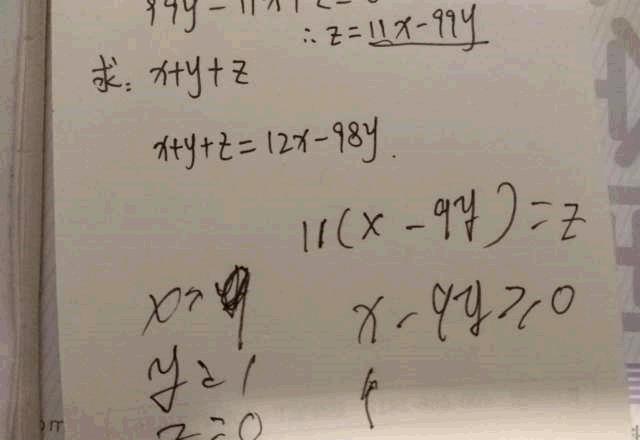 99y-11x+z=0
∴ z=11x-99y
求: x+y+z
x+y+z=12x-98y.
11(x-9y)=z
x=9
x-9y≥0
y=1
z=0